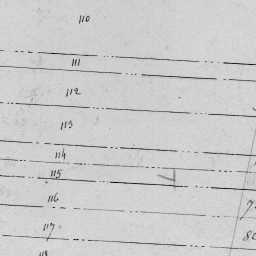 110
111
112
113
114
115
116
117